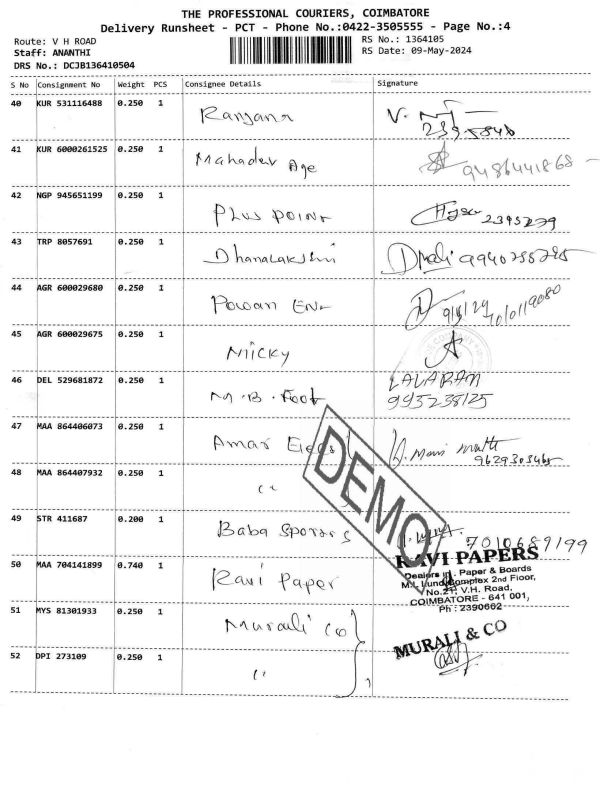 THE PROFESSIONAL COURIERS, COIMBATORE
Delivery Runsheet - PCT - Phone No.:0422-3505555 - Page No.:4
Route: V H ROAD RS No.: 1364105
Staff: ANANTHI RS Date: 09-May-2024
DRS No.: DCJB136410504
S No Consignment No Weight PCS Consignee Details Signature
40 KUR 531116488 0.250 1
Ranjana V.
41 KUR 6000261525 0.250 1
Mahadev Age 9486441868
42 NGP 945651199 0.250 1
Plus Point 2395279
43 TRP 8057691 0.250 1
Dhanalakshmi
44 AGR 600029680 0.250 1
Powan Ent
45 AGR 600029675 0.250 1
Micky
46 DEL 529681872 0.250 1 LALARAM
M.B. Foot 995238125
47 MAA 864406073 0.250 1
Amar Elecs
48 MAA 864407932 0.250 1
"
DEMO
49 STR 411687 0.200 1
Baba Sports 7010689199
50 MAA 704141899 0.740 1 RAVI PAPERS
Ravi Paper Dealers in . Paper & Boards
Complex 2nd Floor,
No.21, V.H. Road,
COIMBATORE - 641 001,
Ph : 2390602
51 MYS 81301933 0.250 1
Murali Co MURALI & CO
52 DPI 273109 0.250 1
"